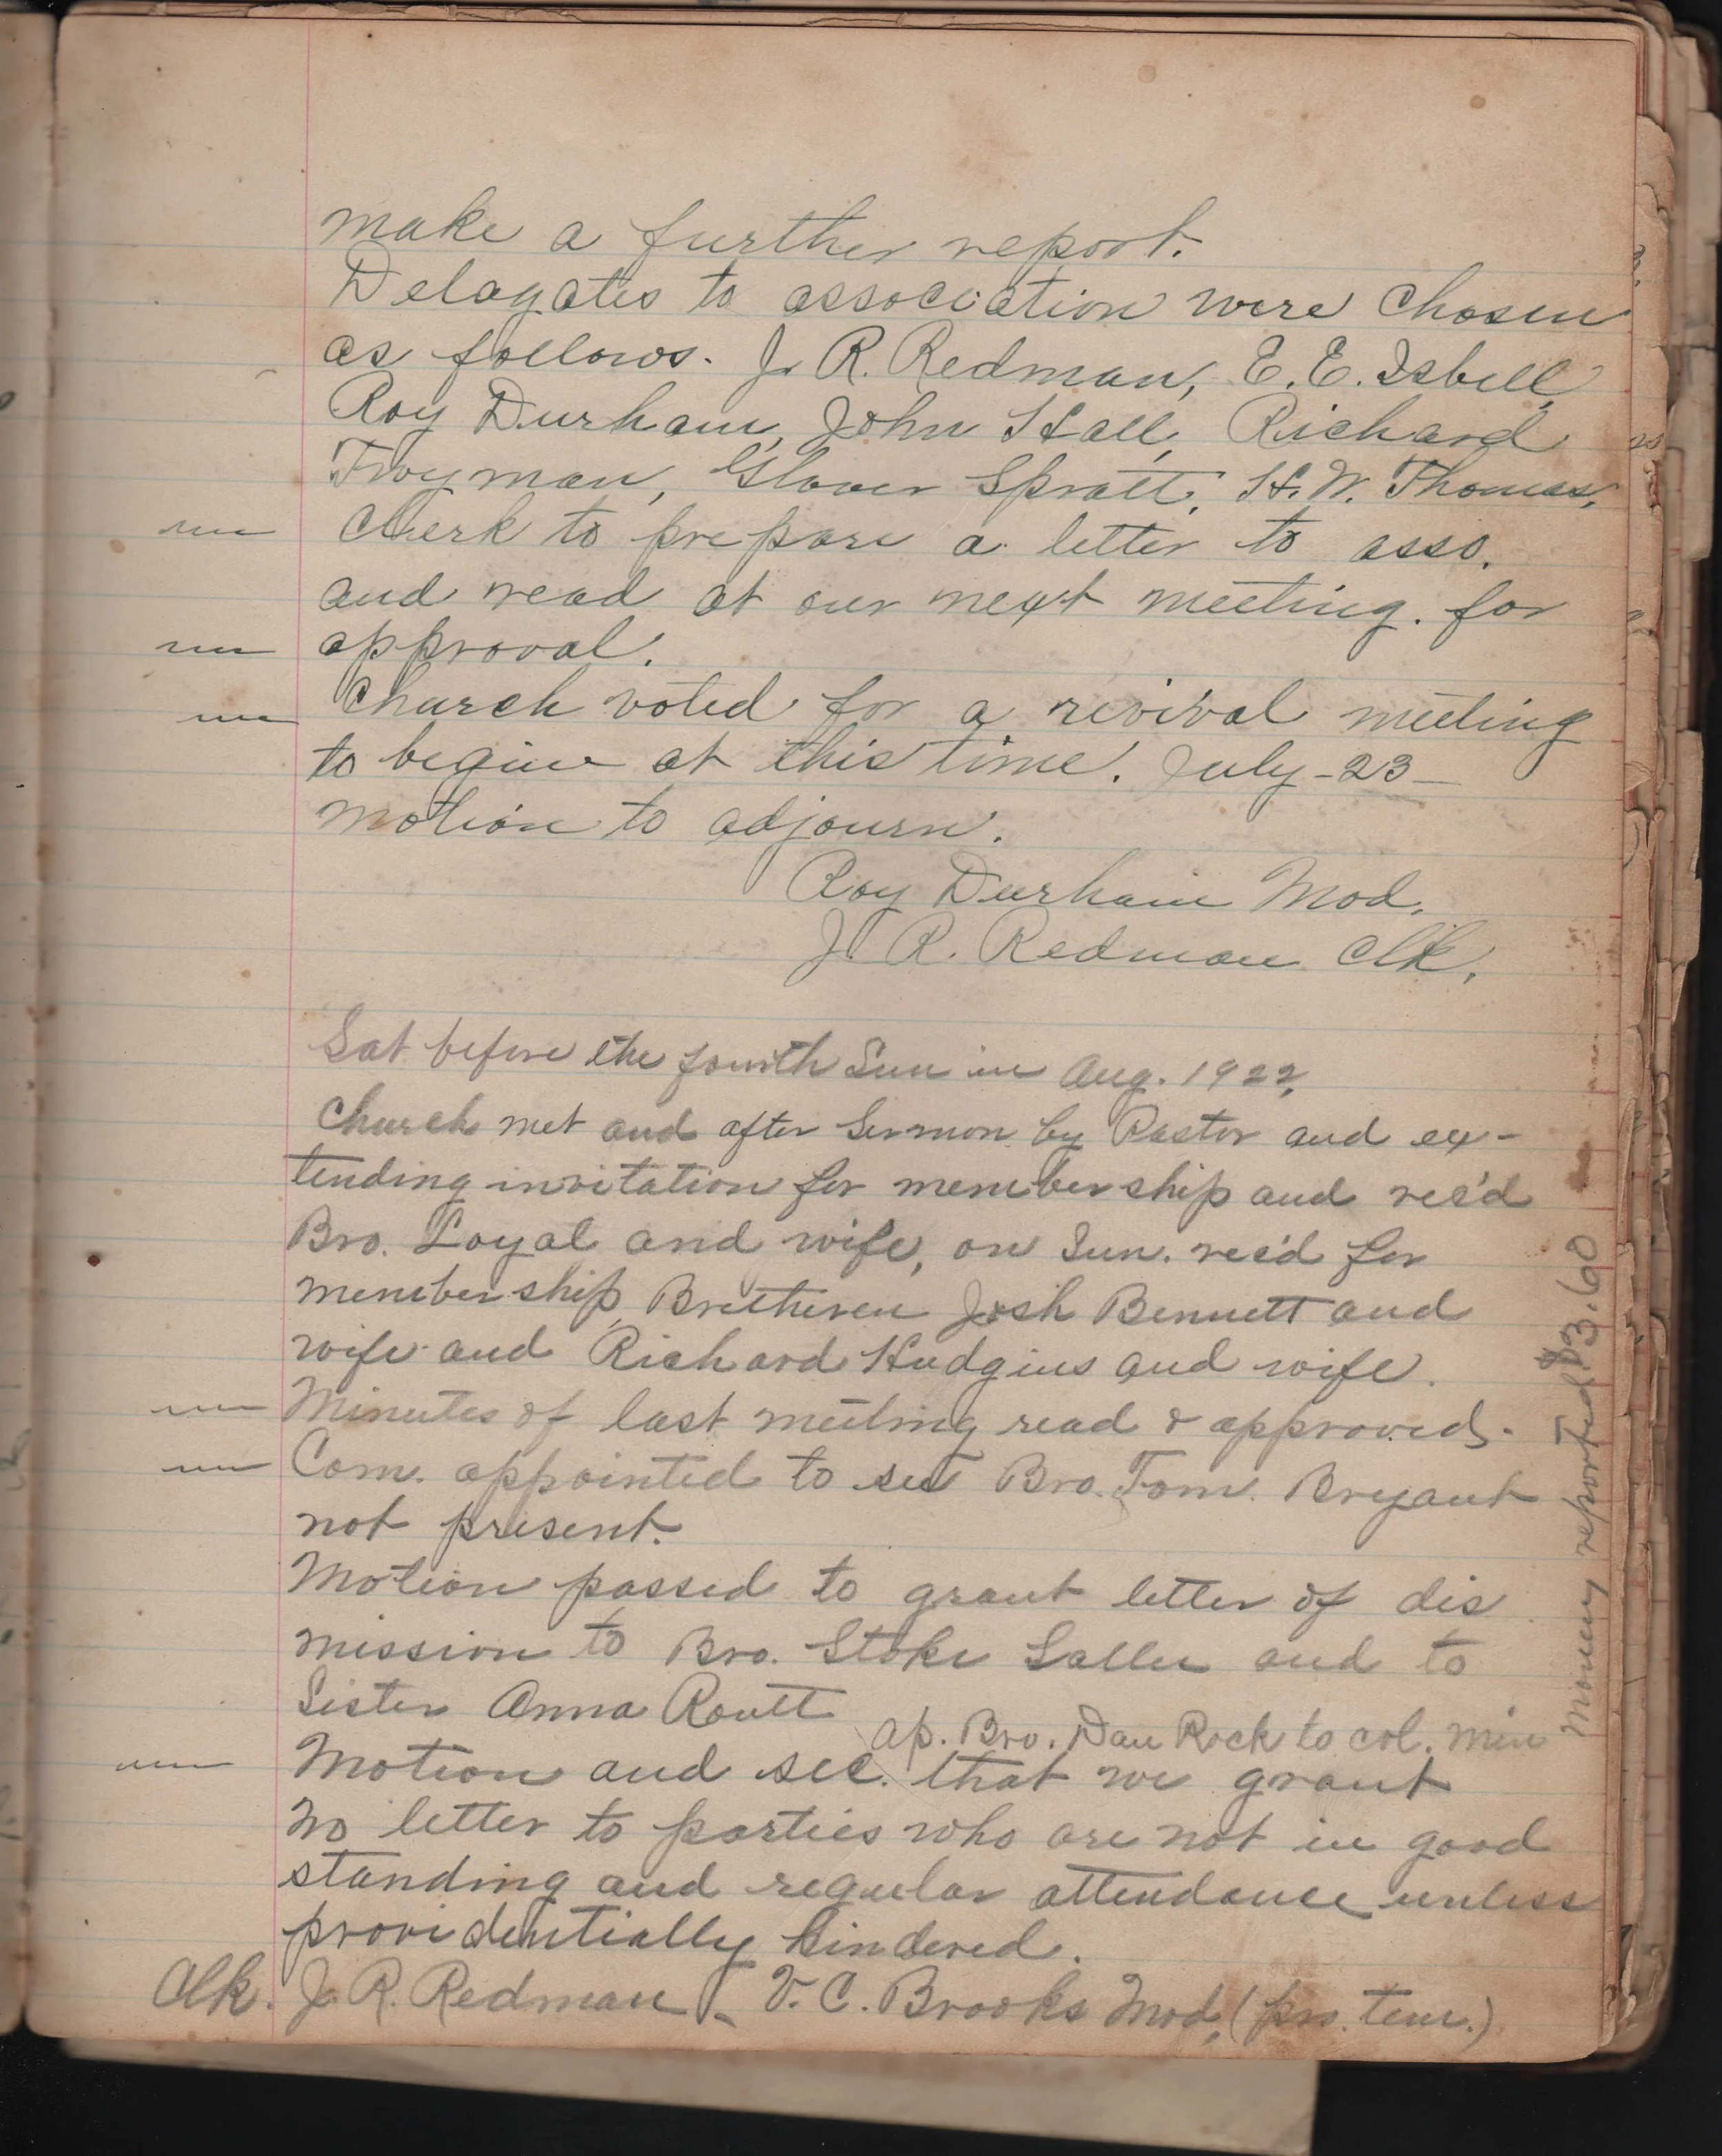 make a further report.
Delagates to association were chosen
as follows. J. R. Redman, E. E. Isbell,
Roy Durham, John Hall, Richard
Troyman, Glover Spratt, H. W. Thomas,
Clerk to prepare a letter to asso.
and read at our next meeting. for
approval.
Church voted for a revival meeting
to begin at this time. July-23-
motion to adjourn.
Roy Durham Mod.
J. R. Redman Clk.
Sat before the fourth Sun in Aug. 1922,
Church met and after sermon by Pastor and ex-
tending invitation for membership and rec'd
Bro. Loyal and wife, on Sun. rec'd for
membership, Bretheren Josh Bennett and
wife and Richard Hudgins and wife.
Minutes of last meeting read & approved.
Com. appointed to see Bro. Tom. Bryant
not present.
Motion passed to grant letter of dis
mission to Bro. Stoke Sallee and to
Sister Anna Routt
ap. Bro. Dan Rock to col. min
Motion and sec. that we grant
no letter to parties who are not in good
standing and regular attendance unless
providentially hindered.
Clk. J. R. Redman - V. C. Brooks Mod. (pro. tem.)
Money reported $3.60